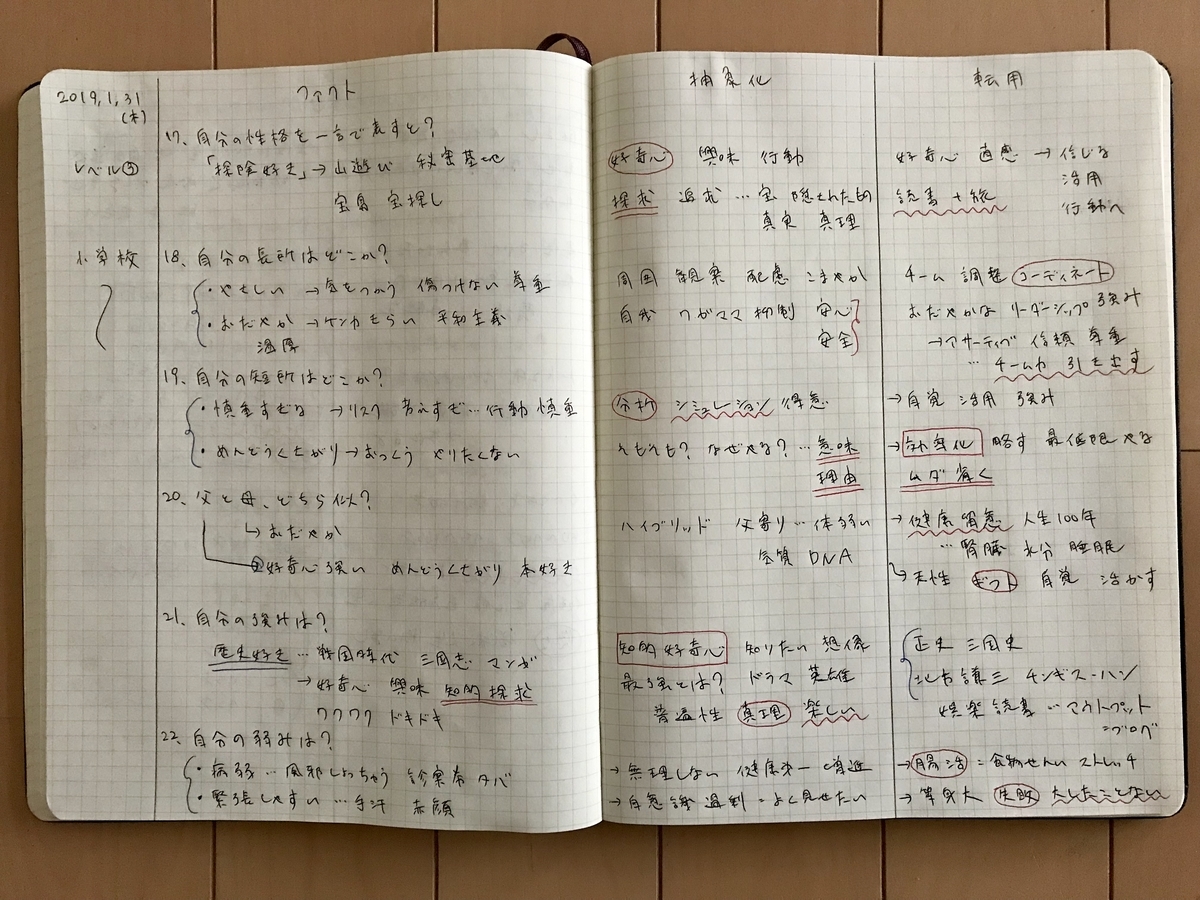 2019.1.31
(木)
レベル③
小学校
ファクト
17. 自分の性格を一言で表すと?
「探険好き」→山遊び 秘密基地
宝島 宝探し
18. 自分の長所はどこか?
・やさしい →気をつかう 傷つけない 尊重
・おだやか →ケンカきらい 平和主義
温厚
19. 自分の短所はどこか?
・慎重すぎる →リスク 考えすぎ…行動 慎重
・めんどうくさがり→おっくう やりたくない
20. 父と母、どちら似?
↳おだやか
好奇心強い めんどうくさがり 本好き
21. 自分の強みは?
歴史好き…戦国時代 三国志 マンガ
→好奇心 興味 知的探求
ワクワク ドキドキ
22. 自分の弱みは?
・病弱…風邪しょっちゅう 診察券タバ
・緊張しやすい…手汗 赤顔
抽象化
好奇心 興味 行動
探求 追求…宝 隠されたもの
真実 真理
周囲 観察 配慮 こまやか
自我 ワガママ 抑制 安心
安全
分析 シミュレーション 得意
そもそも? なぜやる?…意味
理由
ハイブリッド 父寄り…体弱い
気質 DNA
知的好奇心 知りたい 想像
最強とは? ドラマ 英雄
普遍性 真理 楽しい
→無理しない 健康第一
→自意識過剰=よく見せたい
転用
好奇心 直感 →信じる
活用
行動へ
読書+旅
チーム 調整 コーディネート
おだやかな リーダーシップ 強み
→アサーティブ 信頼 尊重
…チーム力 引き出す
→自覚 活用 強み
→効率化 略す 最低限やる
ムダ省く
→健康留意 人生100年
…腎臓 水分 睡眠
↳天性 ギフト 自覚 活かす
正史 三国史
北方謙三 チンギス・ハン
娯楽読書…アウトプット
=ブログ
→腸活=食物せんい ストレッチ
→等身大 失敗 大したことない